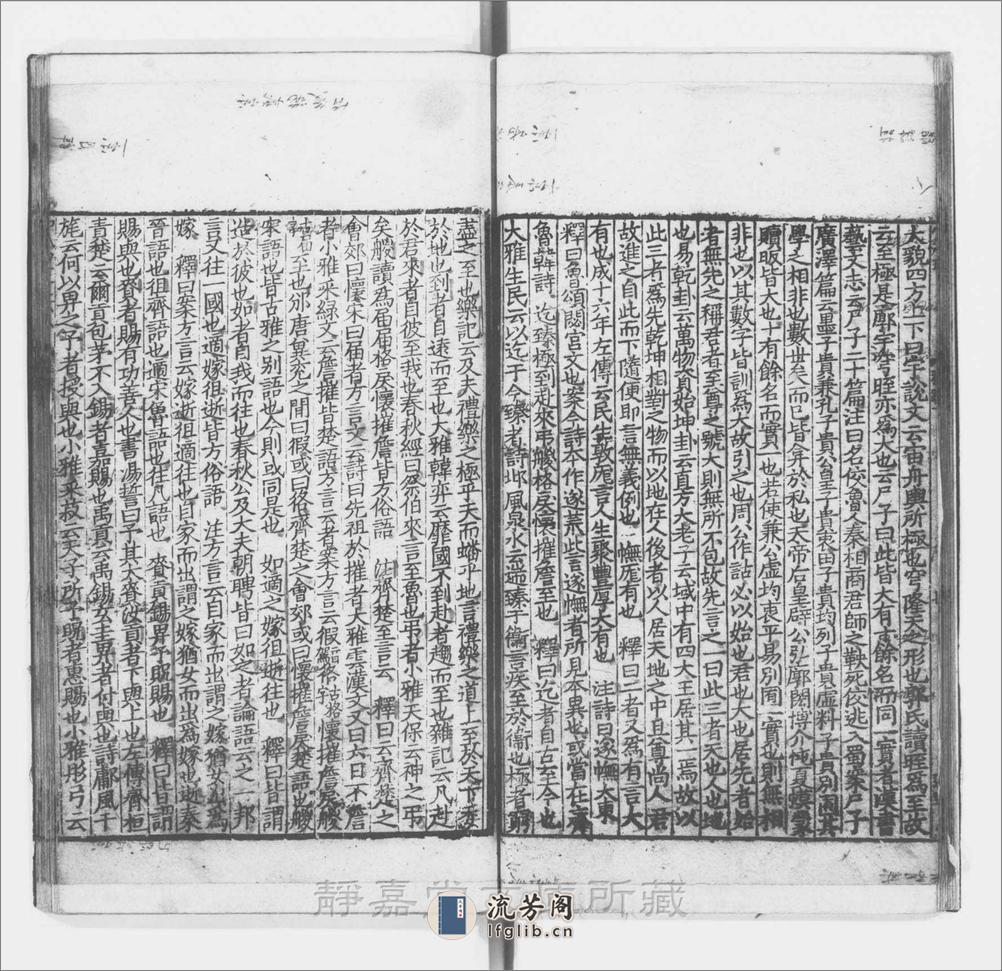 大貌四方上下曰宇說文云宙舟輿所極也穹隆天之形也郭氏讀晊為至故
云至極是廓宇穹晊亦為大也云尸子曰此皆大有十餘名而同一實者漢書
藝文志云尸子二十篇注曰名佼魯人秦相商君師之鞅死佼逃入蜀案尸子
廣澤篇云墨子貴兼孔子貴公皇子貴衷田子貴均列子貴虛料子貴別囿其
學之相非也數世矣而已皆弇於私也天帝后皇辟公弘廓閎博介忳夏幠蒙
贖昄皆大也十有餘名而實一也若使兼公虛均衷平易別囿一實也則無相
非也以其數字皆訓為大故引之也周公作詁必以始也君也大也居先者始
者無先之稱君者至尊之號大則無所不包故先言之一曰此三者天也人也地
也易乾卦云萬物資始坤卦云直方大老子云域中有四大王居其一焉故以
此三者為先乾坤相對之物而以地在人後者以人居天地之中且尊尚人君
故進之自此而下隨便即言無義例也　幠厖有也　釋曰二者又為有言大
有也成十六年左傳云民生敦厖言人生聚豐厚大有也　注詩曰遂幠大東
釋曰魯頌閟宮文也案今詩本作遂荒此言遂幠者所見本異也或當在齊
魯韓詩　迄臻極到赴來弔艐格戾懷摧詹至也　釋曰迄者自古至今也
大雅生民云以迄于今臻者詩邶風泉水云遄臻于衞言疾至於衞也極者窮
盡之至也樂記云及夫禮樂之極乎天而蟠乎地言禮樂之道上至於天下委
於地也到者自遠而至也大雅韓弈云靡國不到赴者趨而至也雜記云凡赴
於君來者自彼至我也春秋經曰祭伯來言至魯也弔者小雅天保云神之弔
矣艐讀為屆屆格戾懷摧詹皆方俗語　注齊楚至言云　釋曰云齊楚之
會郊曰懷宋曰屆者方言文云詩曰先祖於摧者大雅雲漢文又曰六日不詹
者小雅采綠文云詹摧皆楚語方言云者案方言云假𢓜懷摧詹戾艐
至也邠唐冀兗之間曰假或曰𢓜齊楚之會郊或曰懷摧詹戾楚語也艐
宋語也皆古雅之別語也今則或同是也　如適之嫁徂逝往也　釋曰皆謂
造於彼也如者自我而往也春秋公及大夫朝聘皆曰如之者論語云之一邦
言又往一國也適嫁徂逝皆方俗語　注方言云自家而出謂之嫁猶女出為
嫁　釋曰案方言云嫁逝徂適往也自家而出謂之嫁猶女而出為嫁也逝秦
晉語也徂齊語也適宋魯語也往凡語也　賚貢錫畀予貺賜也　釋曰皆謂
賜與也賚者賜有功善人也書湯誓曰予其大賚汝貢者下與上也左傳齊桓
責楚云爾貢包茅不入錫者嘉賜也禹貢云禹錫玄圭畀者付與也詩鄘風干
旄云何以畀之予者授與也小雅采菽云天子所予貺者惠賜也小雅彤弓云
靜嘉堂文庫所藏
流芳阁
lfglib.cn